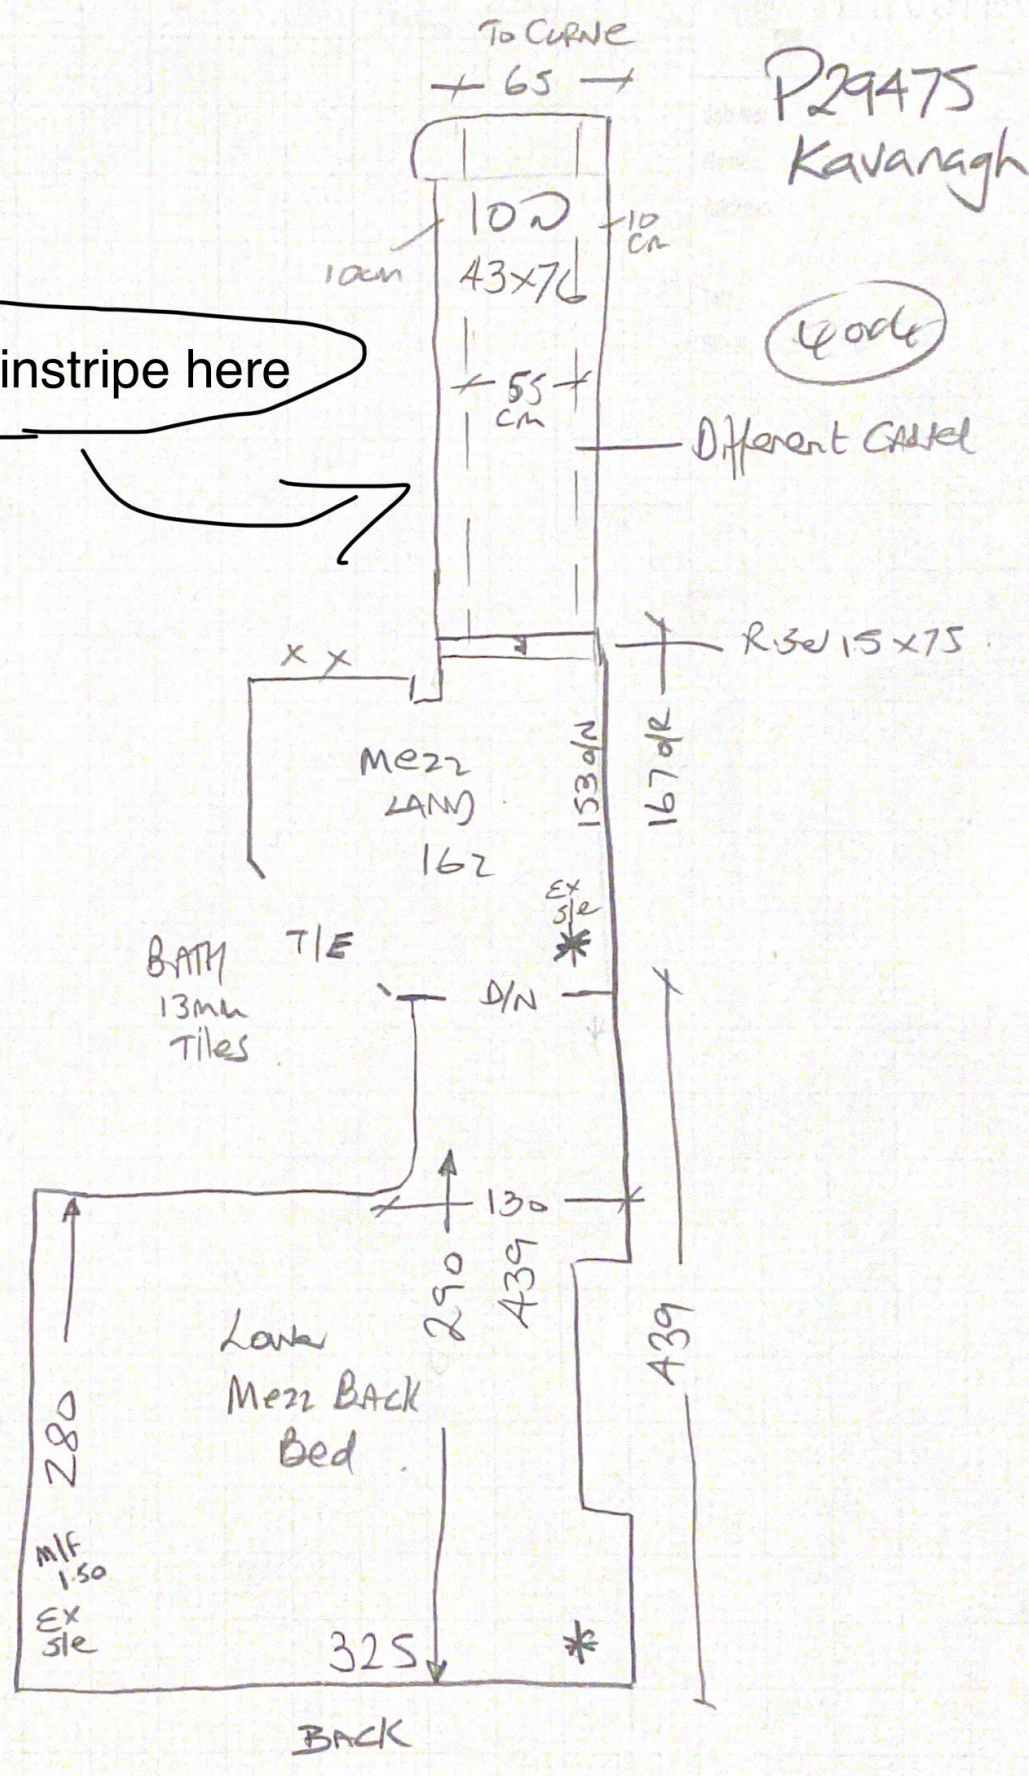 To CURVE
65
P29475
Kavanagh
10D
10cm
10
cm
43x76
instripe here
55
cm
Different Carpet
Riser 15x75
x x
Mezz
LAND
162
153 d/N
167 o/R
Ex
s/e
*
T/E
BATH
13mm
Tiles
D/N
130
290
439
439
Lower
Mezz BACK
Bed
280
M/F
1.50
Ex
s/e
325
*
BACK